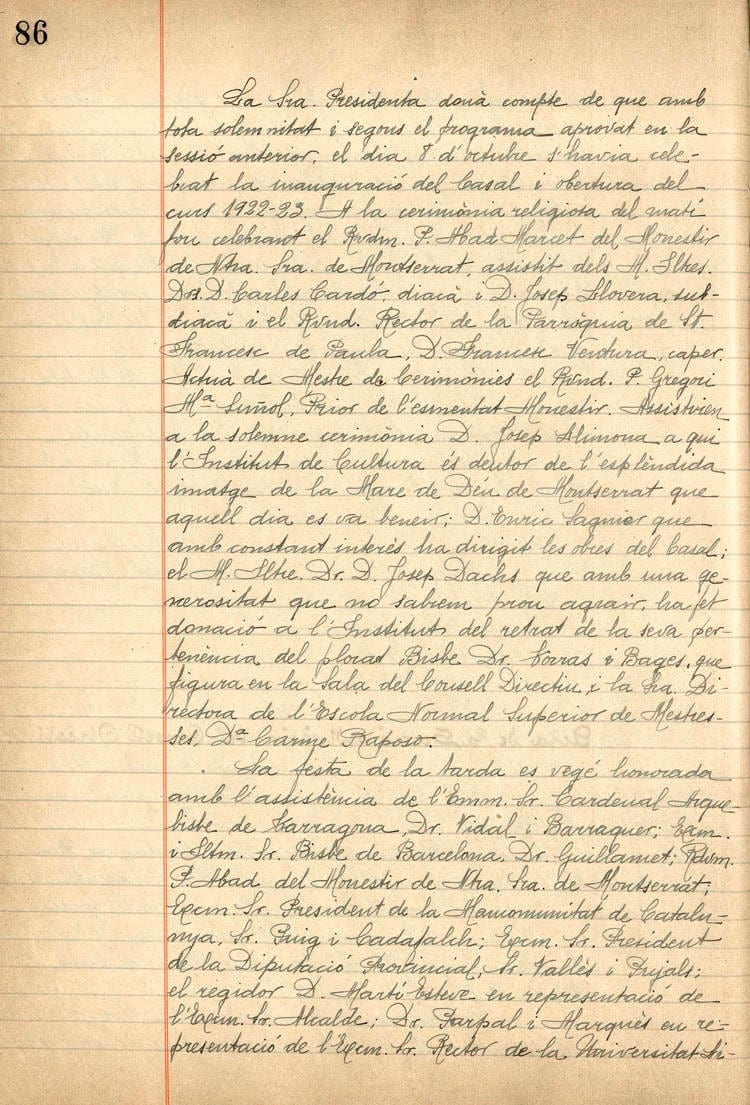 86
La Sra. Presidenta donà compte de que amb
tota solemnitat i segons el programa aprovat en la
sessió anterior, el dia 8 d'octubre s'havia cele-
brat la inauguració del Casal i obertura del
curs 1922-23. A la cerimònia religiosa del matí
fou celebrant el Rvdm. P. Abad Marcet del Monestir
de Ntra. Sra. de Montserrat, assistit dels M. Iltres.
Drs. D. Carles Cardó, diacà i D. Josep Llovera, sub-
diacà i el Rvnd. Rector de la Parròquia de St.
Francesc de Paula, D. Francesc Ventura, caper.
Actuà de Mestre de Cerimònies el Rvnd. P. Gregori
Mª Suñol, Prior de l'esmentat Monestir. Assistiren
a la solemne cerimònia D. Josep Llimona a qui
l'Institut de Cultura és deutor de l'esplèndida
imatge de la Mare de Déu de Montserrat que
aquell dia es va beneir; D. Enric Sagnier que
amb constant interés ha dirigit les obres del Casal;
el M. Iltre. Dr. D. Josep Dachs que amb una ge-
nerositat que no sabem prou agrair, ha fet
donació a l'Institut del retrat de la seva per-
tenència del plorat Bisbe Dr. Torras i Bages, que
figura en la Sala del Consell Directiu, i la Sra. Di-
rectora de l'Escola Normal Superior de Mestres-
ses, Dª Carme Raposo.
La festa de la tarda es vegé honorada
amb l'assistència de l'Emm. Sr. Cardenal Arque-
bisbe de Tarragona, Dr. Vidal i Barraquer; Excm.
i Iltm. Sr. Bisbe de Barcelona, Dr. Guillamet; Rdvm.
P. Abad del Monestir de Ntra. Sra. de Montserrat;
Excm. Sr. President de la Mancomunitat de Catalu-
nya, Sr. Puig i Cadafalch; Excm. Sr. President
de la Diputació Provincial, Sr. Vallès i Pujals;
el regidor D. Martí Esteve en representació de
l'Excm. Sr. Alcalde; Dr. Parpal i Marquès en re-
presentació de l'Excm. Sr. Rector de la Universitat Li-